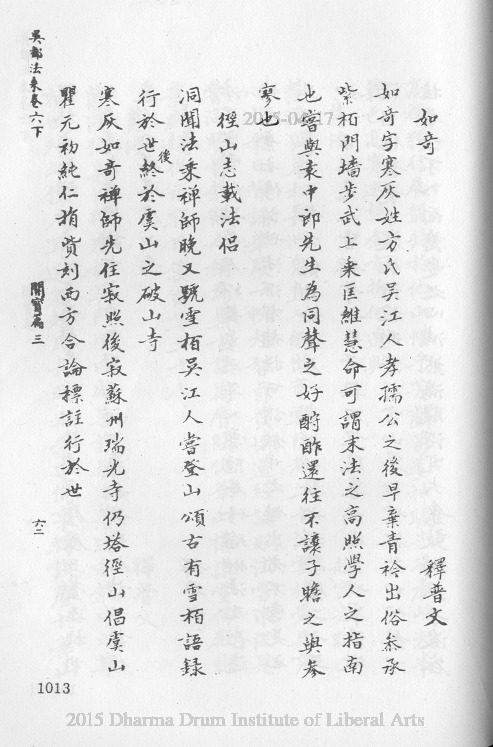 如奇　釋普文
如奇字寒灰姓方氏吳江人孝孺公之後早棄青衿出俗叅承
紫栢門墻步武上乘匡維慧命可謂末法之高照學人之指南
也嘗與袁中郎先生為同聲之好酧酢還往不讓子瞻之與參
寥也
徑山志載法侶
洞聞法乘禪師晚又號雪栢吳江人嘗登山頌古有雪栢語錄
行於世後終於虞山之破山寺
寒灰如奇禪師先住寂照後寂蘇州瑞光寺仍塔徑山倡虞山
瞿元初純仁捐貲刻西方合論標註行於世
吳都法乘卷六下　闡寶篇三　六二
1013
2015-04-17
2015 Dharma Drum Institute of Liberal Arts